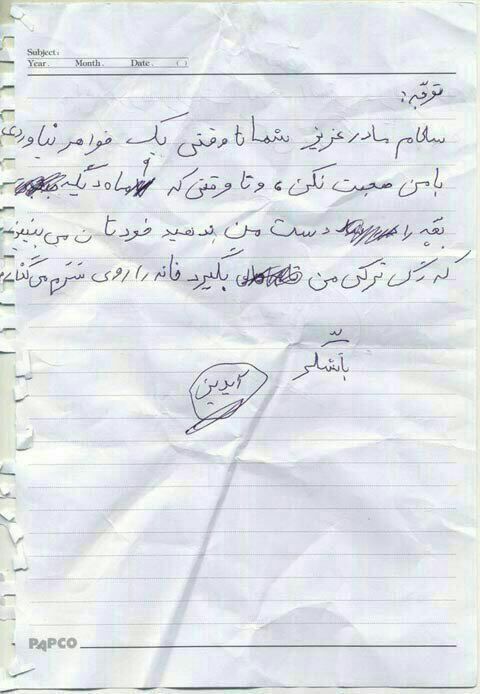 Subject:
Year. Month. Date. ( )
توجه:
سلام مادر عزیز شما تا وقتی یک خواهر نیاوردی
با من صحبت نکن، و تا وقتی که ۹ ماه دیگه
بچه را دست من بدهید خودتان می‌بینین
که رگ ترکی من بگیرد خانه را روی سَرَم می‌گذارم
باتشکر
آیدین
PAPCO